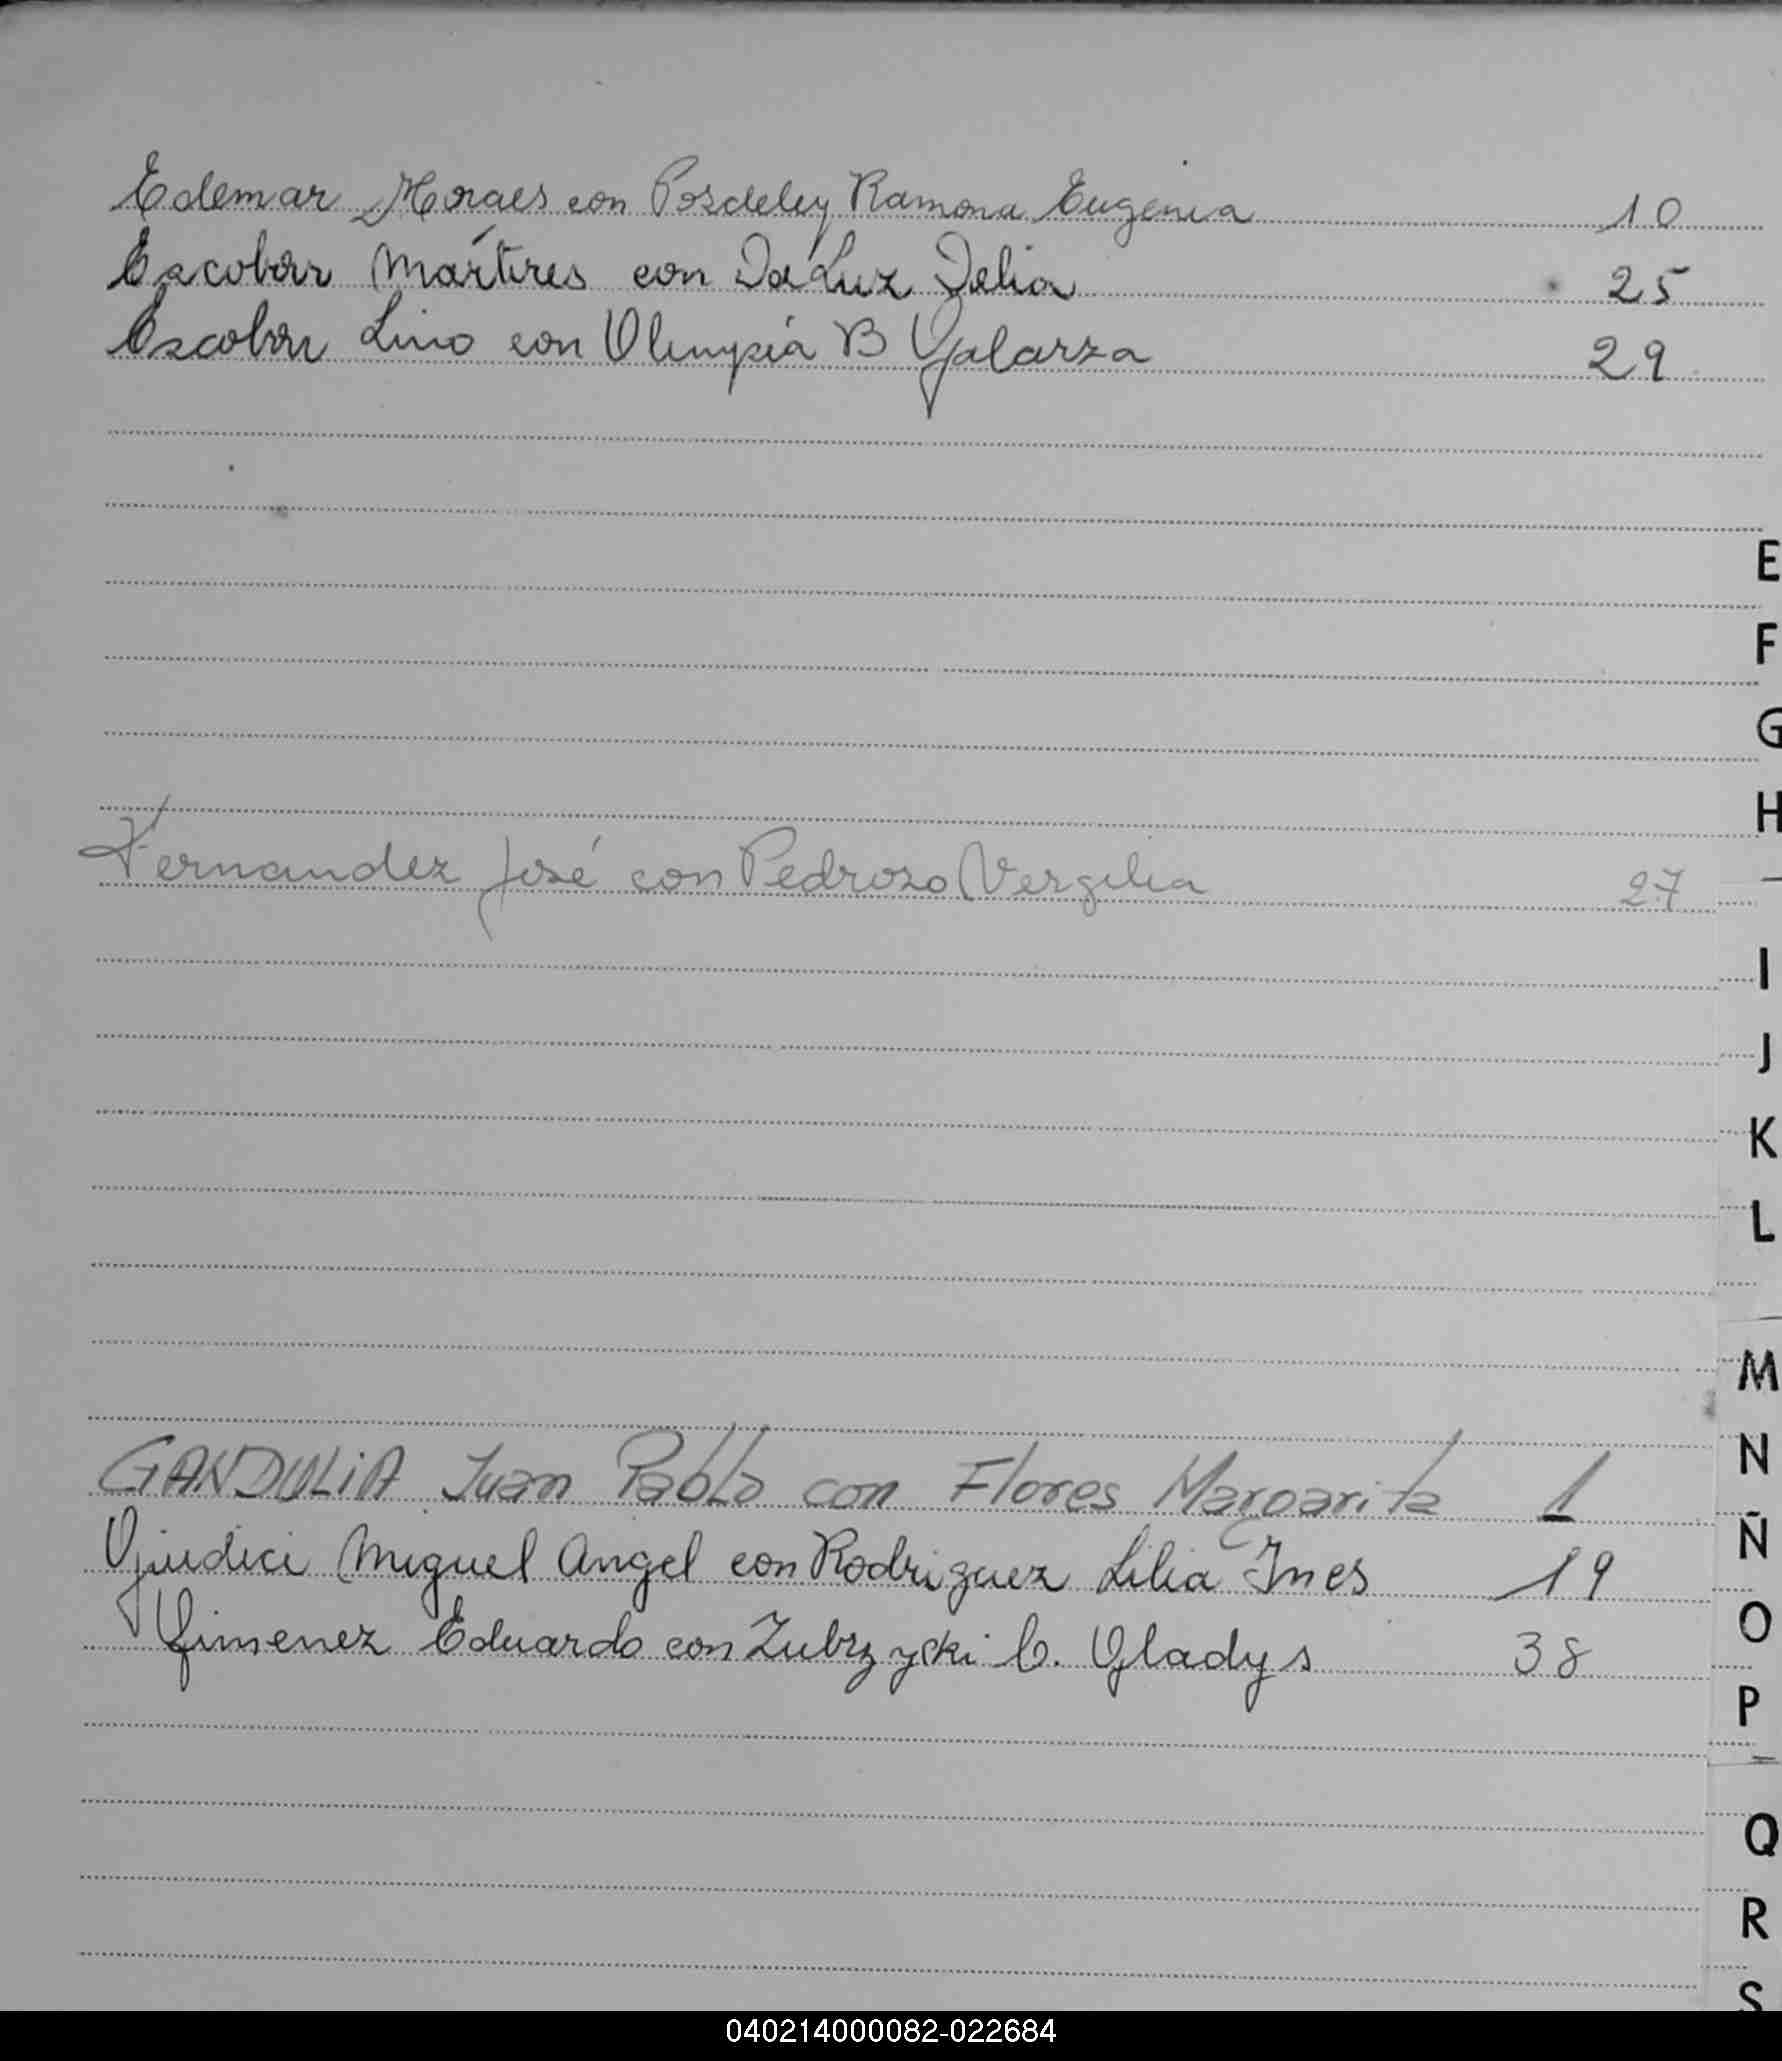 Edemar Moraes con Posdeley Ramona Eugenia 10
Escobar Mártires con Da Luz Delia 25
Escobar Lino con Olimpia B Galarza 29
E
F
G
H
Fernandez José con Pedrozo Vergilia 27
I
J
K
L
M
GANDULIA Juan Pablo con Flores Margarita 1
N
Giudici Miguel Angel con Rodriguez Lilia Ines 19
Ñ
Gimenez Eduardo con Zubrzycki C. Gladys 38
O
P
Q
R
S
040214000082-022684